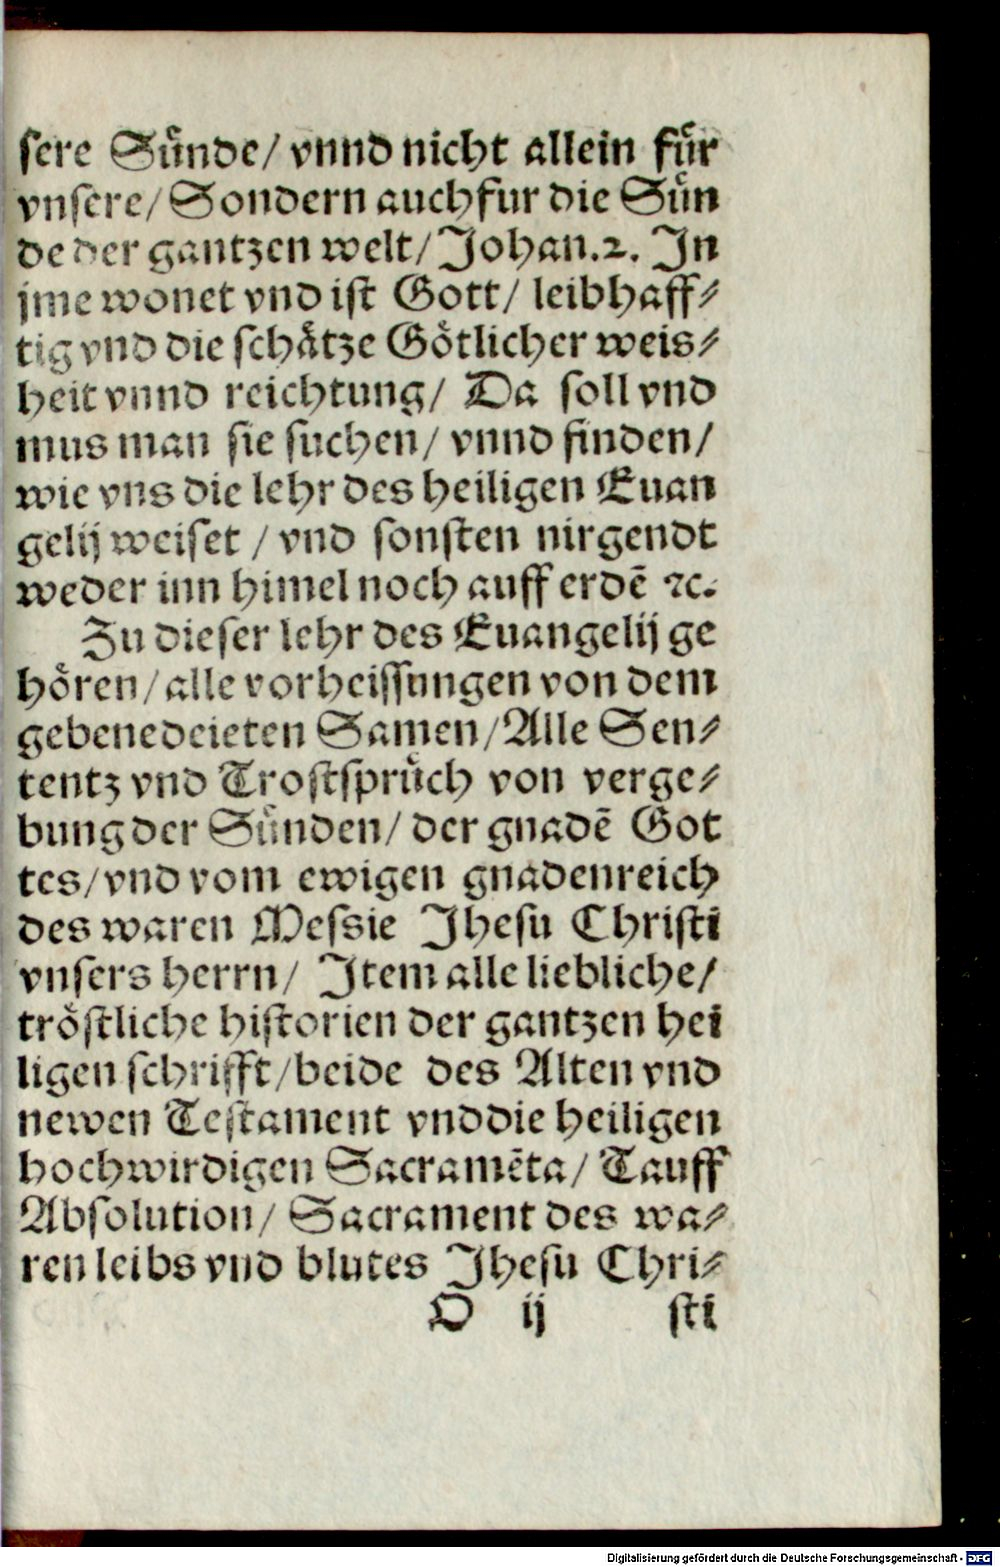 sere Sůnde/ vnnd nicht allein fůr
vnsere/ Sondern auch fur die Sůn
de der gantzen welt/ Johan.2. In
jme wonet vnd ist Gott/ leibhaff⸗
tig vnd die schåtze Gőtlicher weis⸗
heit vnnd reichtung/ Da soll vnd
mus man sie suchen/ vnnd finden/
wie vns die lehr des heiligen Euan
gelij weiset / vnd sonsten nirgendt
weder inn himel noch auff erdẽ ꝛc.
Zu dieser lehr des Euangelij ge
hőren/ alle vorheissungen von dem
gebenedeieten Samen/ Alle Sen⸗
tentz vnd Trostsprůch von verge⸗
bung der Sůnden/ der gnadẽ Got
tes/ vnd vom ewigen gnadenreich
des waren Messie Jhesu Christi
vnsers herrn/ Item alle liebliche/
trőstliche historien der gantzen hei
ligen schrifft/ beide des Alten vnd
newen Testament vnd die heiligen
hochwirdigen Sacramẽta/ Tauff
Absolution/ Sacrament des wa⸗
ren leibs vnd blutes Jhesu Chri⸗
O ij sti
Digitalisierung gefördert durch die Deutsche Forschungsgemeinschaft - DFG